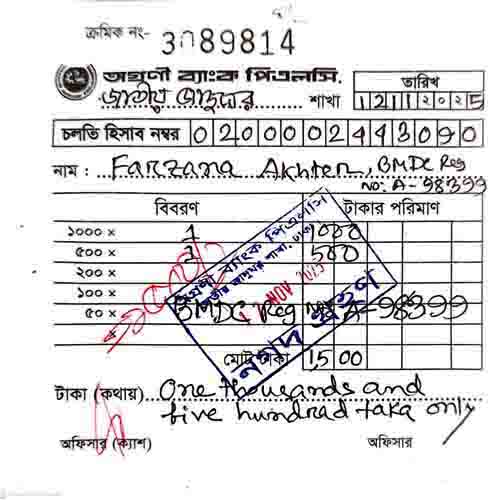 ক্রমিক নং- 3089814
অগ্রণী ব্যাংক পিএলসি.
জাতীয় জাদুঘর শাখা
তারিখ
12112025
চলতি হিসাব নম্বর 0200002443090
নাম : Farzana Akhter, BMDC Reg
NO: A-98399
বিবরণ টাকার পরিমাণ
১০০০ × 1 1000
৫০০ × 1 500
২০০ ×
১০০ ×
৫০ × BMDC Reg No: A-98399
মোট টাকা 1500
অগ্রণী ব্যাংক পিএলসি
জাতীয় জাদুঘর শাখা, ঢাকা
NOV
নগদ গ্রহণ
টাকা (কথায়) One thousands and
five hundrad taka only
অফিসার (ক্যাশ) অফিসার